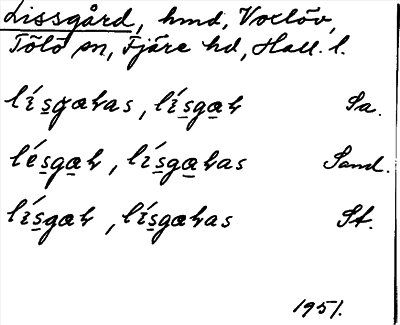 Lissgård, hmd, Voxlöv,
Tölö sn, Fjäre hd, Hall. l.
lísgæras, lísgær Sa.
lésgær, lísgæras Sand.
lísgær, lísgæras St.
1951.